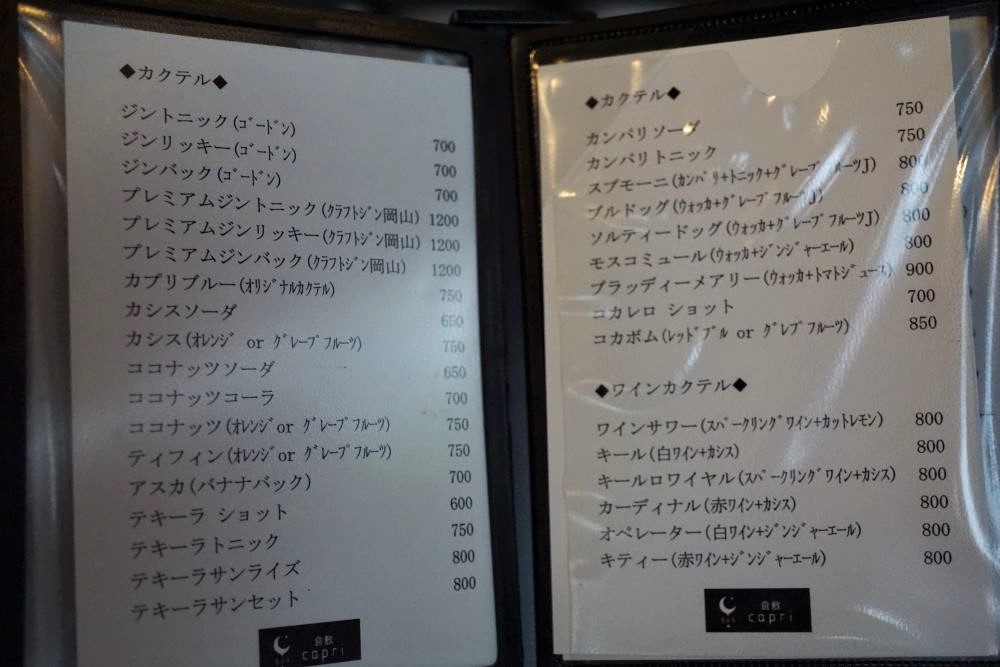 ◆カクテル◆
ジントニック(ｺﾞｰﾄﾞﾝ) 700
ジンリッキー(ｺﾞｰﾄﾞﾝ) 700
ジンバック(ｺﾞｰﾄﾞﾝ) 700
プレミアムジントニック(ｸﾗﾌﾄｼﾞﾝ岡山) 1200
プレミアムジンリッキー(ｸﾗﾌﾄｼﾞﾝ岡山) 1200
プレミアムジンバック(ｸﾗﾌﾄｼﾞﾝ岡山) 1200
カプリブルー(ｵﾘｼﾞﾅﾙｶｸﾃﾙ) 750
カシスソーダ 650
カシス(ｵﾚﾝｼﾞ or ｸﾞﾚｰﾌﾟﾌﾙｰﾂ) 750
ココナッツソーダ 650
ココナッツコーラ 700
ココナッツ(ｵﾚﾝｼﾞor ｸﾞﾚｰﾌﾟﾌﾙｰﾂ) 750
ティフィン(ｵﾚﾝｼﾞor ｸﾞﾚｰﾌﾟﾌﾙｰﾂ) 750
アスカ(バナナバック) 700
テキーラ ショット 600
テキーラトニック 750
テキーラサンライズ 800
テキーラサンセット 800
倉敷
capri
◆カクテル◆
カンパリソーダ 750
カンパリトニック 750
スプモーニ(ｶﾝﾊﾟﾘ+ﾄﾆｯｸ+ｸﾞﾚｰﾌﾟﾌﾙｰﾂJ) 800
ブルドッグ(ｳｫｯｶ+ｸﾞﾚｰﾌﾟﾌﾙｰﾂJ) 800
ソルティードッグ(ｳｫｯｶ+ｸﾞﾚｰﾌﾟﾌﾙｰﾂJ) 800
モスコミュール(ｳｫｯｶ+ｼﾞﾝｼﾞｬｰｴｰﾙ) 800
ブラッディーメアリー(ｳｫｯｶ+ﾄﾏﾄｼﾞｭｰｽ) 900
コカレロ ショット 700
コカボム(ﾚｯﾄﾞﾌﾞﾙ or ｸﾞﾚﾌﾟﾌﾙｰﾂ) 850
◆ワインカクテル◆
ワインサワー(ｽﾊﾟｰｸﾘﾝｸﾞﾜｲﾝ+ｶｯﾄﾚﾓﾝ) 800
キール(白ﾜｲﾝ+ｶｼｽ) 800
キールロワイヤル(ｽﾊﾟｰｸﾘﾝｸﾞﾜｲﾝ+ｶｼｽ) 800
カーディナル(赤ﾜｲﾝ+ｶｼｽ) 800
オペレーター(白ﾜｲﾝ+ｼﾞﾝｼﾞｬｰｴｰﾙ) 800
キティー(赤ﾜｲﾝ+ｼﾞﾝｼﾞｬｰｴｰﾙ) 800
倉敷
capri